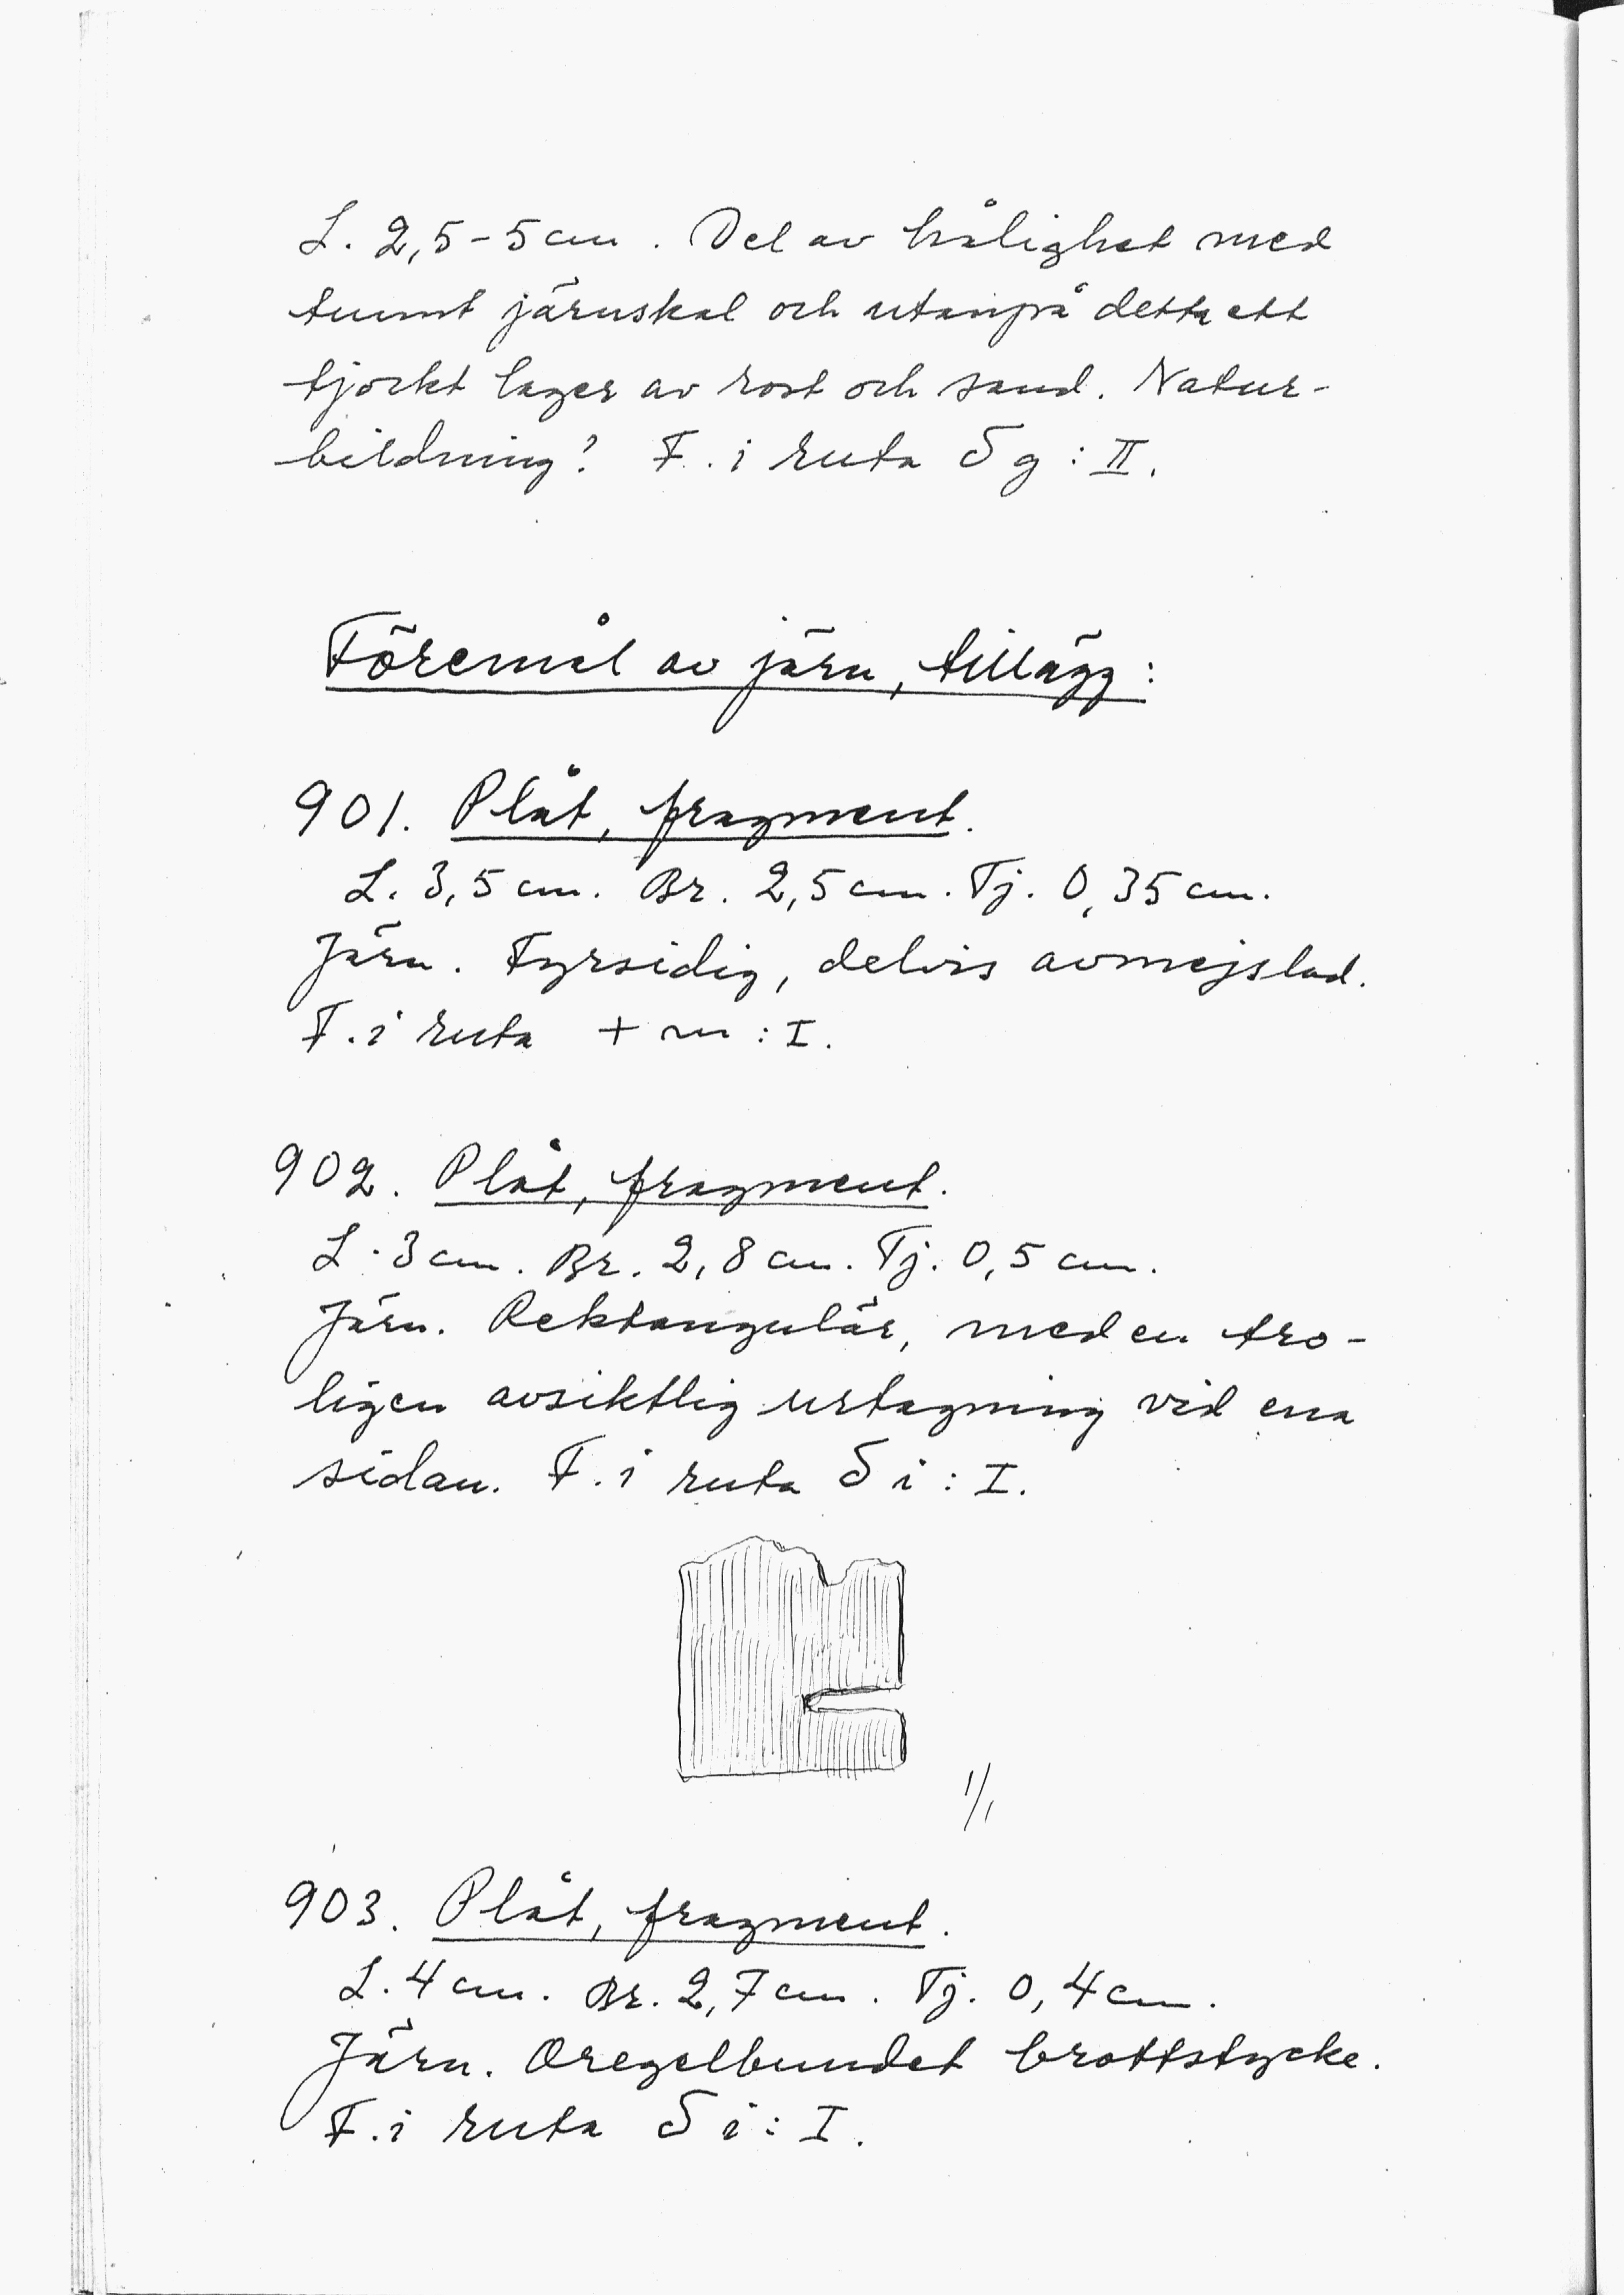 L. 2,5-5 cm. Del av hålighet med
tunnt järnskal och utanpå detta ett
tjockt lager av rost och sand. Natur-
bildning? F. i ruta S g : II.
Föremål av järn, tillägg:
901. Plåt, fragment.
L. 3,5 cm. Br. 2,5 cm. Tj. 0,35 cm.
Järn. Fyrsidig, delvis avmejslad.
F. i ruta + m : I.
902. Plåt, fragment.
L. 3 cm. Br. 2,8 cm. Tj. 0,5 cm.
Järn. Rektangulär, med en tro-
ligen avsiktlig urtagning vid ena
sidan. F. i ruta S i : I.
1/1
903. Plåt, fragment.
L. 4 cm. Br. 2,7 cm. Tj. 0,4 cm.
Järn. Oregelbundet brottstycke.
F. i ruta S i : I.